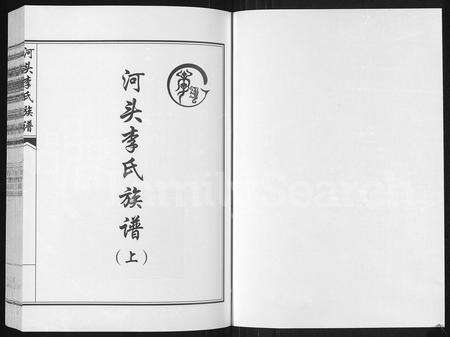 河头李氏族谱
河头李氏族谱
（上）
FamilySearch